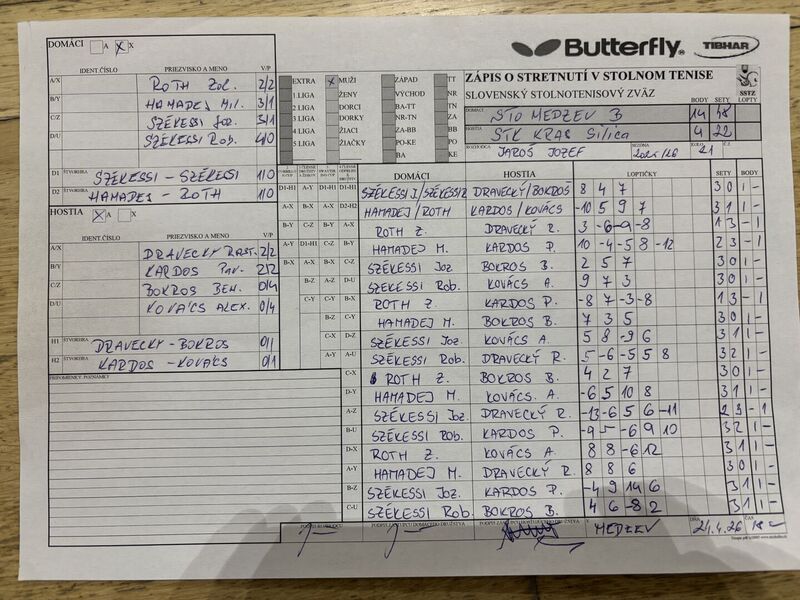 DOMÁCI A X X
Butterfly® TIBHAR
IDENT.ČÍSLO PRIEZVISKO A MENO V/P
A/X ROTH Zol. 2/2
B/Y HAMADEJ Mil. 3/1
C/Z SZÉKESSI Joz. 3/1
D/U SZÉKESSI Rob. 4/0
D1 ŠTVORHRA SZÉKESSI - SZÉKESSI 1/0
D2 ŠTVORHRA HAMADEJ - ROTH 1/0
HOSTIA X A X
IDENT.ČÍSLO PRIEZVISKO A MENO V/P
A/X DRAVECKÝ Rast. 2/2
B/Y KARDOS Pav. 2/2
C/Z BOKROS BEN. 0/4
D/U KOVÁCS ALEX. 0/4
H1 ŠTVORHRA DRAVECKÝ - BOKROS 0/1
H2 ŠTVORHRA KARDOS - KOVÁCS 0/1
PRIPOMIENKY, POZNÁMKY
EXTRA X MUŽI ZÁPAD TT
1 LIGA ŽENY VÝCHOD NR
2 LIGA DORCI BA-TT TN
3 LIGA DORKY NR-TN
4 LIGA ŽIACI ZA-BB
5 LIGA ŽIAČKY PO-KE PO
BA KE
ZÁPIS O STRETNUTÍ V STOLNOM TENISE
SLOVENSKÝ STOLNOTENISOVÝ ZVÄZ SSTZ
BODY SETY LOPTY
DOMÁCI STO MEDZEV B 14 48
HOSTIA STK KRAS Silica 4 22
ROZHODCA JAROŠ JOZEF SEZÓNA 2025/26 KOLO 21 Č.Z.
DOMÁCI HOSTIA LOPTIČKY SETY BODY
D1-H1 A-Y D1-H1 D1-H1 SZÉKESSI J/SZÉKESSI R DRAVECKÝ/BOKROS 8 4 7 3 0 1 -
A-X B-X A-X D2-H2 HAMADEJ/ROTH KARDOS/KOVÁCS -10 5 9 7 3 1 1 -
B-Y C-Z B-Y A-X ROTH Z. DRAVECKÝ R. 3 -6 -9 -8 1 3 - 1
A-Y D1-H1 C-Z B-Y HAMADEJ M. KARDOS P. 10 -4 -5 8 -12 2 3 - 1
B-X A-X B-X C-Z SZÉKESSI Joz. BOKROS B. 2 5 7 3 0 1 -
SZÉKESSI Rob. KOVÁCS A. 9 7 3 3 0 1 -
C-Y B-X ROTH Z. KARDOS P. -8 7 -3 -8 1 3 - 1
B-Z C-Y HAMADEJ M. BOKROS B. 7 3 5 3 0 1 -
C-X D-Z SZÉKESSI Joz. KOVÁCS A. 5 8 -9 6 3 1 1 -
A-Y A-U SZÉKESSI Rob. DRAVECKÝ R. 5 -6 -5 5 8 3 2 1 -
C-X ROTH Z. BOKROS B. 4 2 7 3 0 1 -
D-Y HAMADEJ M. KOVÁCS. A. -6 5 10 8 3 1 1 -
A-Z SZÉKESSI Joz. DRAVECKÝ R. -13 -6 5 6 -11 2 3 - 1
B-U SZÉKESSI Rob. KARDOS P. -9 5 -6 9 10 3 2 1 -
D-X ROTH Z. KOVÁCS A. 8 8 -6 12 3 1 1 -
A-Y HAMADEJ M. DRAVECKÝ R. 8 8 6 3 0 1 -
B-Z SZÉKESSI Joz. KARDOS P. -4 9 14 6 3 1 1 -
C-U SZÉKESSI Rob. BOKROS B. 4 6 -8 2 3 1 1 -
PODPIS ROZHODCU PODPIS ZÁSTUPCU DOMÁCEHO DRUŽSTVA MEDZEV DŇA 24.4.26 ČAS 18 -